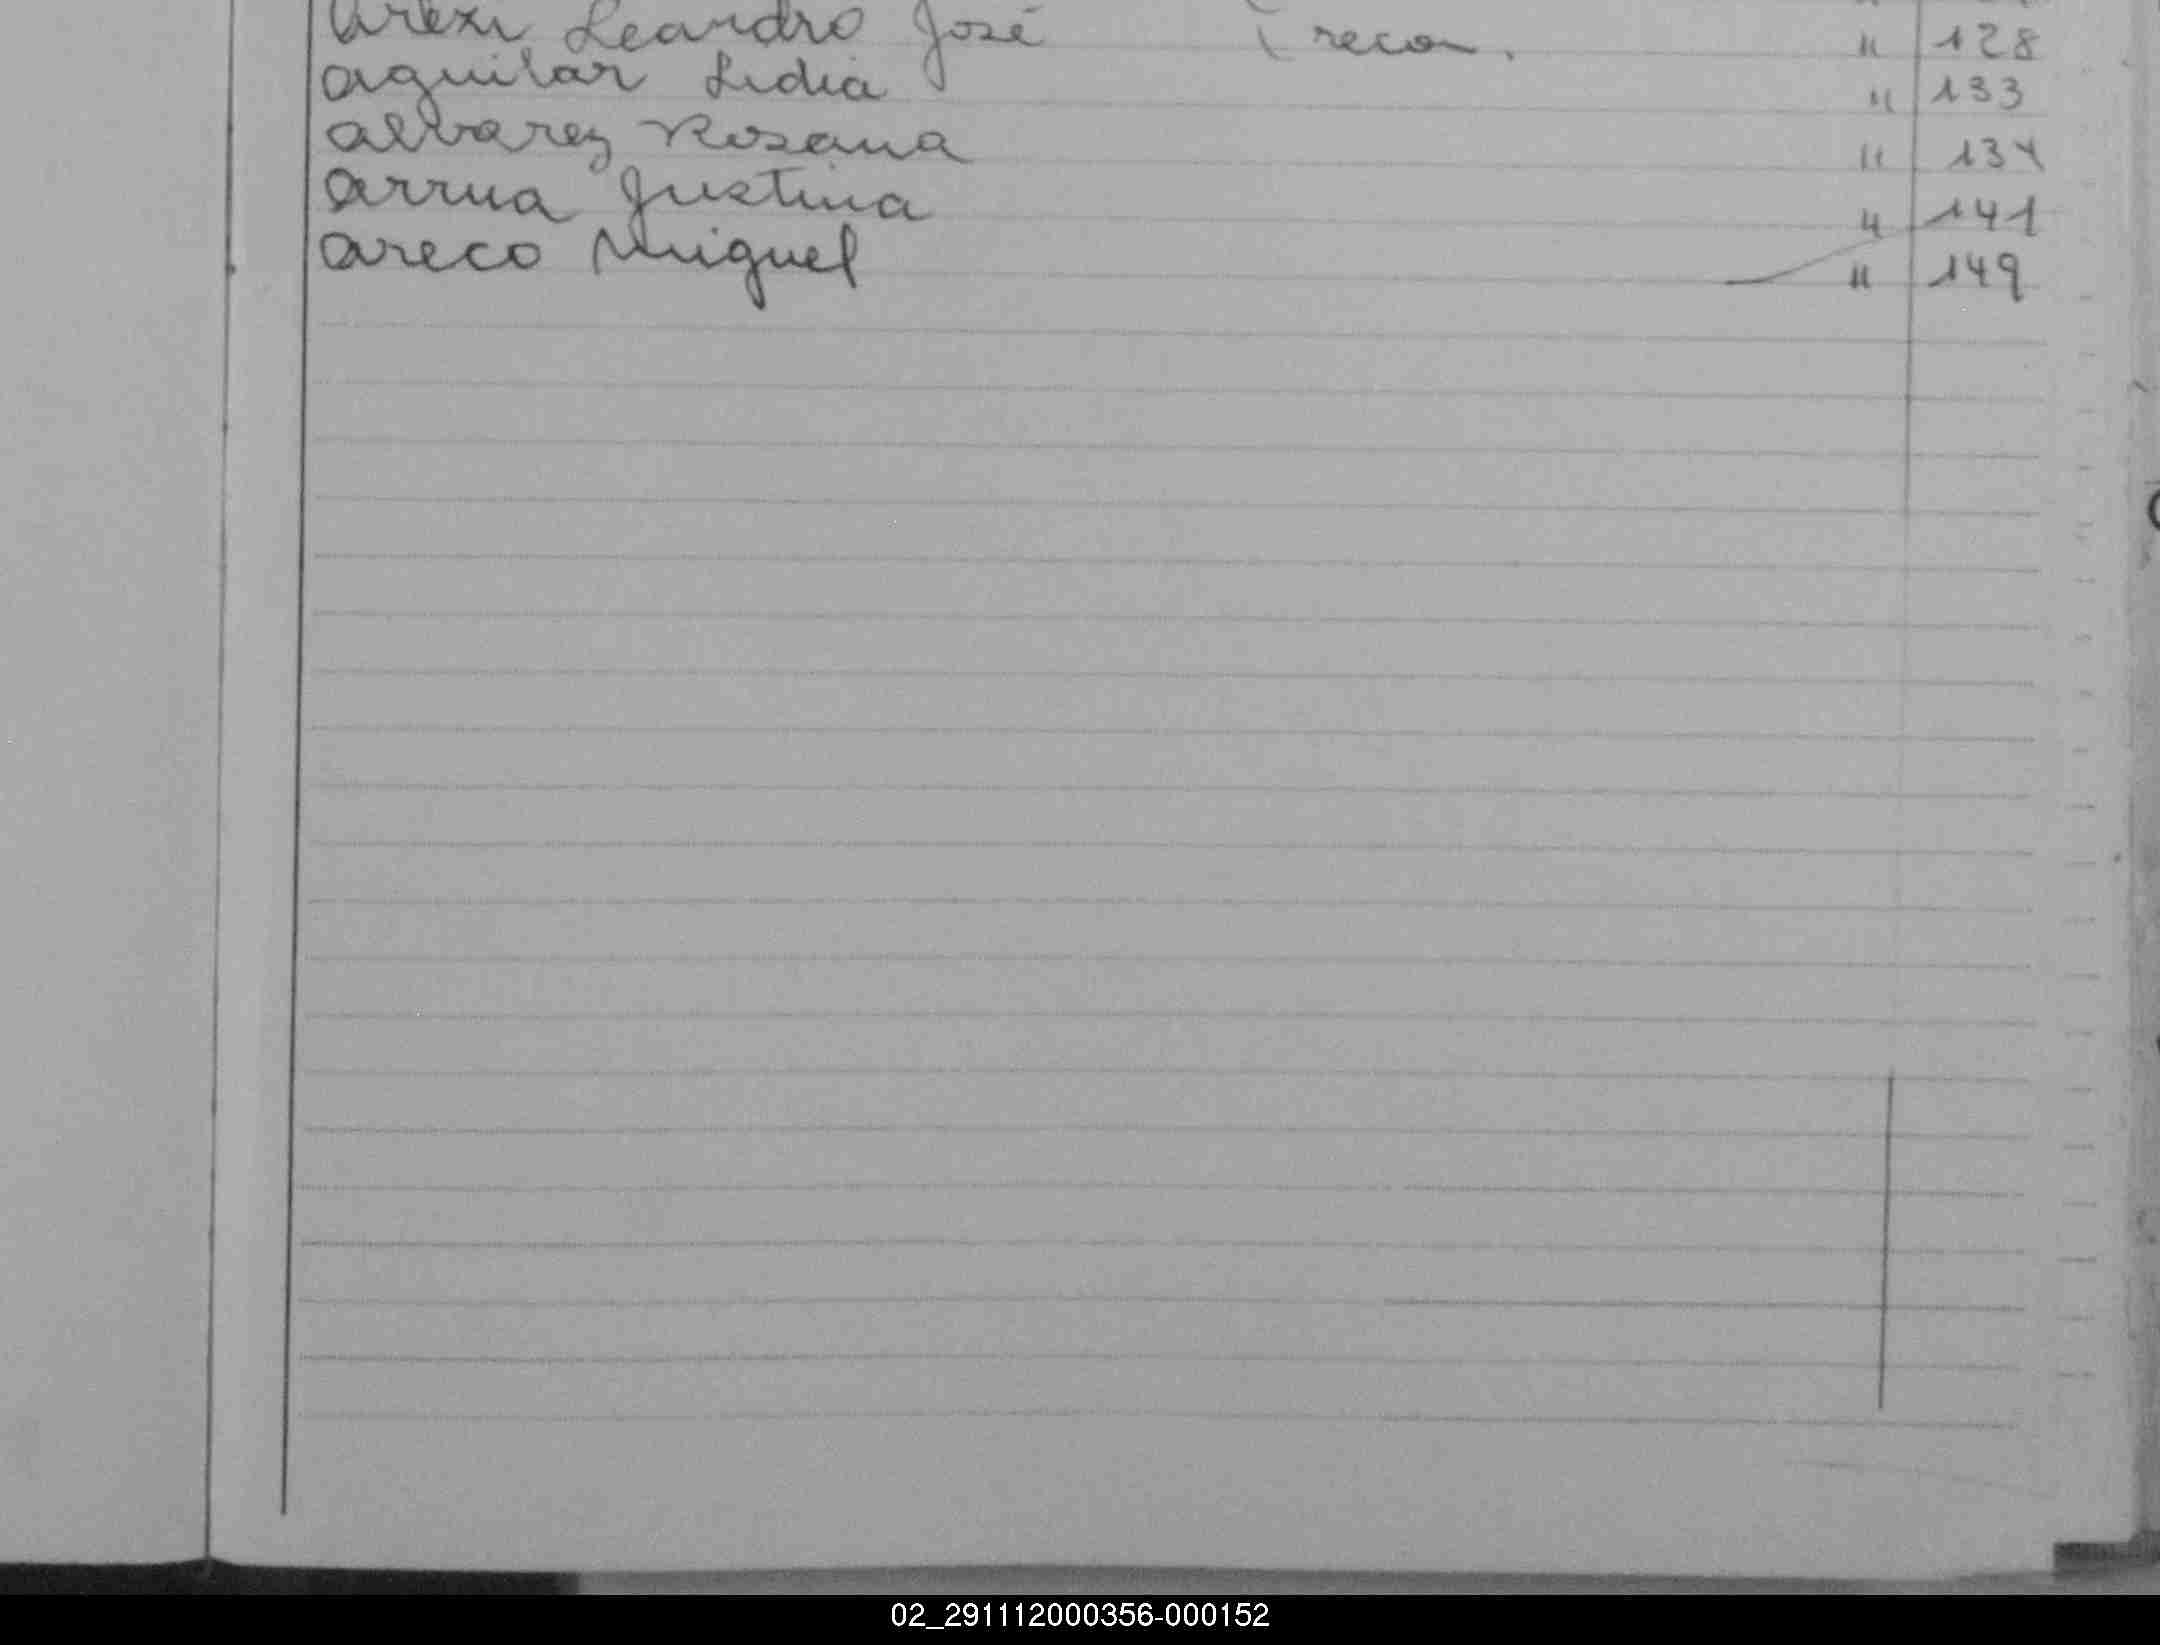 Leandro José ( recon. " 128
Aguilar Lidia " 133
Alvarez Rosana " 134
Arrua Justina " 141
Areco Miguel " 149
02_291112000356-000152